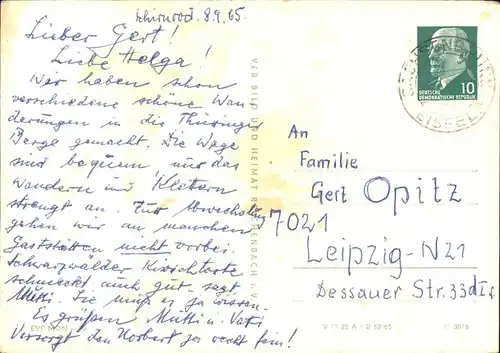 Schirnrod. 8.9.65.
Lieber Gert!
Liebe Helga!
Wir haben schon
verschiedene schöne Wan
derungen in die Thüringer
Berge gemacht. Die Wege
sind bequem nur das
Wandern und Kletern
strengt an. Zur Abwechslung
gehen wir an manchen
Gaststätten nicht vorbei.
Schwarzwälder Kirschtorte
schmeckt auch gut, sagt
Mutti. Sie muß es ja wissen.
Es grüßen Mutti u. Vati
Versorgt den Norbert ja recht fein!
VEB BILD UND HEIMAT REICHENBACH i. V.
10
DEUTSCHE
DEMOKRATISCHE REPUBLIK
EISFELD
An
Familie
Gert Opitz
7021
Leipzig-N21
Dessauer Str. 33d
V 11 28 A 1